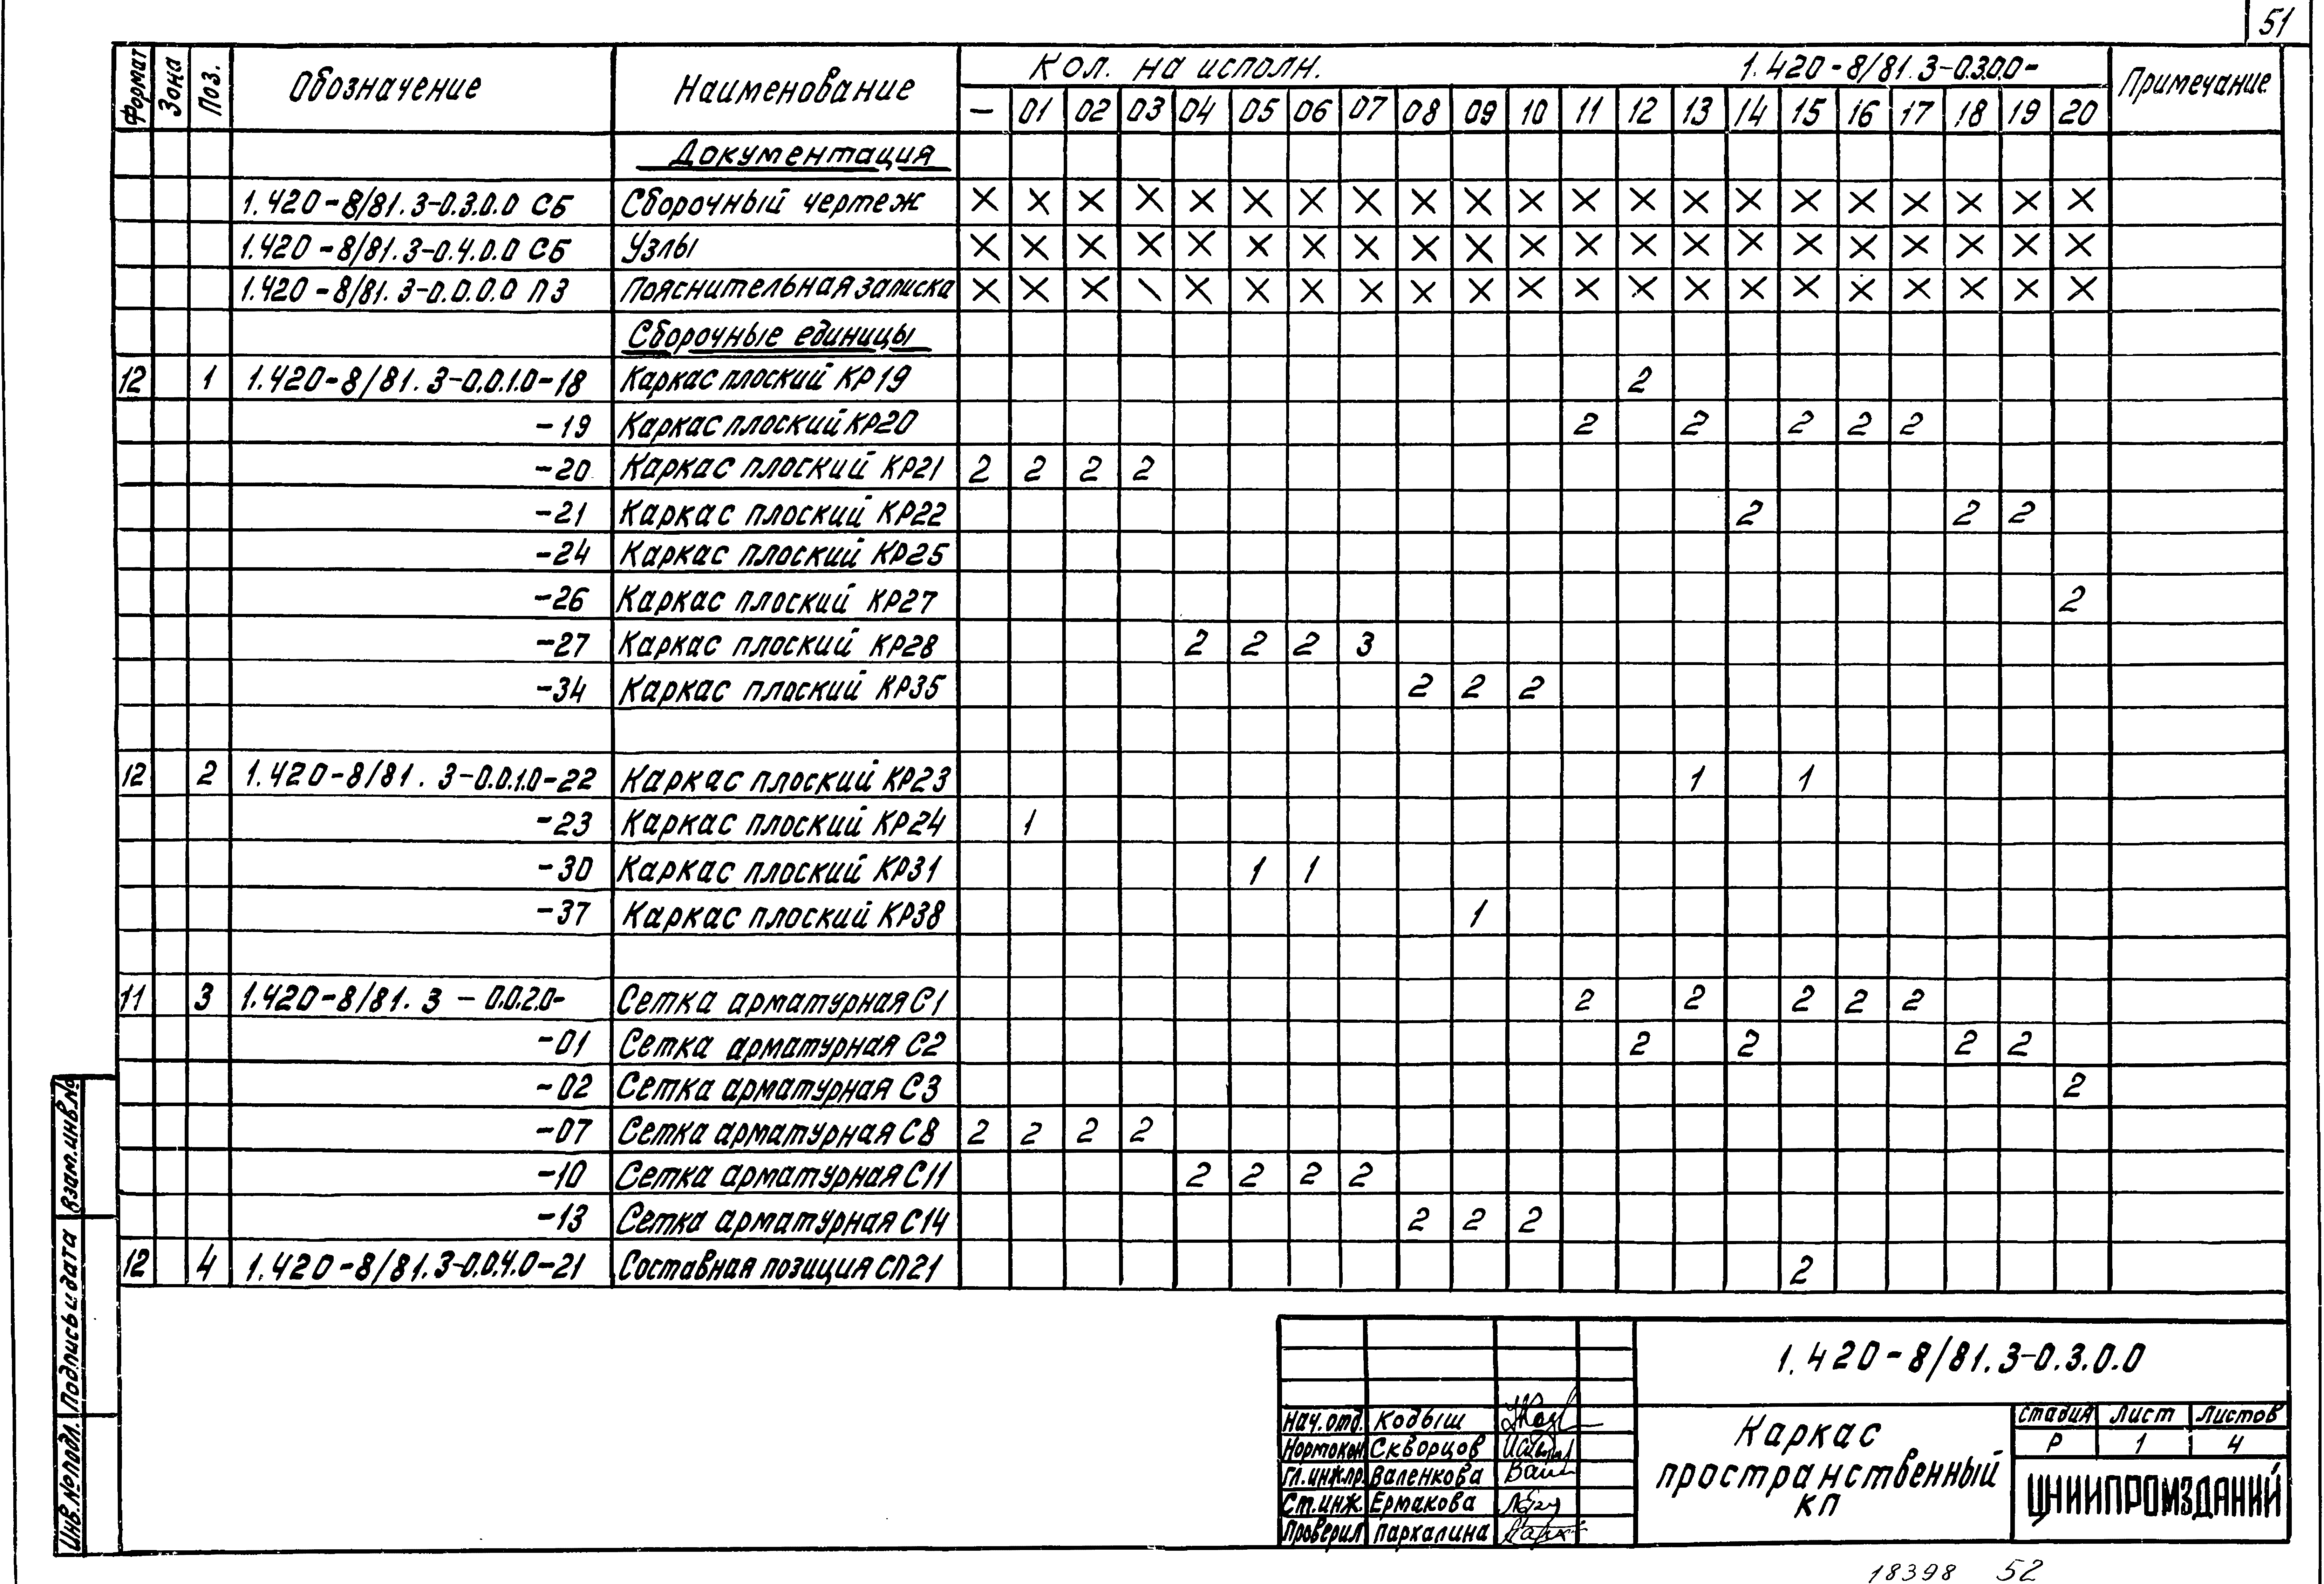 51
Формат Зона Поз. Обозначение Наименование Кол. на исполн. 1.420-8/81.3-0.3.0.0- Примечание
— 01 02 03 04 05 06 07 08 09 10 11 12 13 14 15 16 17 18 19 20
Документация
1.420-8/81.3-0.3.0.0 СБ Сборочный чертеж X X X X X X X X X X X X X X X X X X X X X
1.420-8/81.3-0.4.0.0 СБ Узлы X X X X X X X X X X X X X X X X X X X X X
1.420-8/81.3-0.0.0.0 ПЗ Пояснительная записка X X X \ X X X X X X X X X X X X X X X X X
Сборочные единицы
12 1 1.420-8/81.3-0.0.1.0-18 Каркас плоский КР19 2
-19 Каркас плоский КР20 2 2 2 2 2
-20 Каркас плоский КР21 2 2 2 2
-21 Каркас плоский КР22 2 2 2
-24 Каркас плоский КР25
-26 Каркас плоский КР27 2
-27 Каркас плоский КР28 2 2 2 3
-34 Каркас плоский КР35 2 2 2
12 2 1.420-8/81.3-0.0.1.0-22 Каркас плоский КР23 1 1
-23 Каркас плоский КР24 1
-30 Каркас плоский КР31 1 1
-37 Каркас плоский КР38 1
11 3 1.420-8/81.3-0.0.2.0- Сетка арматурная С1 2 2 2 2 2
-01 Сетка арматурная С2 2 2 2 2
-02 Сетка арматурная С3 2
-07 Сетка арматурная С8 2 2 2 2
-10 Сетка арматурная С11 2 2 2 2
-13 Сетка арматурная С14 2 2 2
12 4 1.420-8/81.3-0.0.4.0-21 Составная позиция СП21 2
Взам.инв.№
Подпись и дата
Инв.№подл.
1.420-8/81.3-0.3.0.0
Нач.отд. Кодыш
Нормокон. Скворцов
Гл.инж.пр. Валенкова
Ст.инж. Ермакова
Проверил Пархалина
Каркас
пространственный
КП
Стадия Лист Листов
Р 1 4
ЦНИИПРОМЗДАНИЙ
18398 52